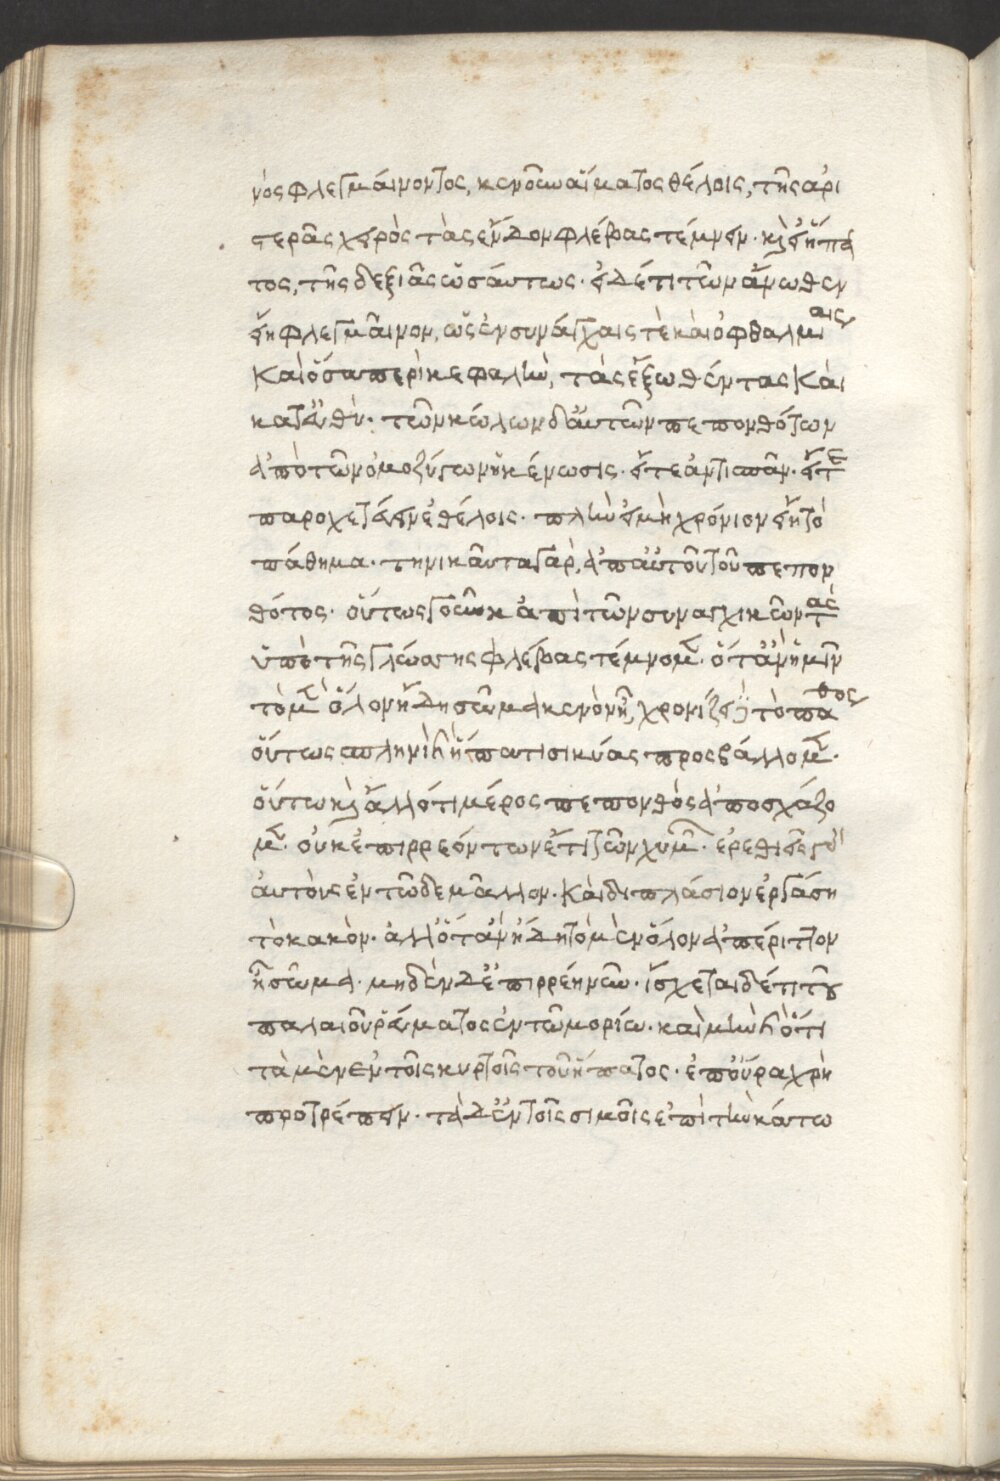 νὸς φλεγμαίνοντος, κενοῦν αἵματος θέλοις, τῆς ἀρι
στερᾶς χειρὸς τὰς ἔνδον φλέβας τέμνειν. καὶ εἰ ἥπα
τος, τῆς δεξιᾶς ὡσάυτως. εἰ δέ τι τῶν ἄνωθεν
εἴη φλεγμαῖνον, ὡς ἐν συνάγχαις τὲ καὶ ὀφθαλμίαις
καὶ ὅσα περὶ κεφαλὴν, τὰς ἔξωθέν τας καὶ
κατευθύ. τῶν κώλων δ' ἀυτῶν πεπονθότων
ἀπὸ τῶν ὁμοζύγων ἡ κένωσις. εἴτε ἀντισπᾶν. εἴτε
παροχετεύειν ἐθέλοις. πλὴν εἰ μὴ χρόνιον εἴη τὸ
πάθημα. τηνικᾶυτα γὰρ, ἀπ' ἀυτοῦ τοῦ πεπον
θότος. οὕτως γοῦν κἀπὶ τῶν συναγχικῶν τὰς
ὑπὸ τῆς γλώσσης φλέβας τέμνομεν. ὅτ' ἂν ἡμῖν
τὸ μὲν ὅλον ἤδη σῶμα κενὸν ἦ, χρονίζει δὲ τὸ πάθος
οὕτως σπληνὶ καὶ ἥπατι σικύας προσβάλλομεν.
οὕτω καὶ ἄλλό τι μέρος πεπονθὸς ἀποσχάζο
μεν. οὐκ ἐπιρρεόντων ἔτι τῶν χυμῶν. ἐρεθίσεις γὰρ
ἀυτὸυς ἐν τῶδε μᾶλλον. καὶ διπλάσιον ἐργάση
τὸ κακὸν. ἀλλ' ὅτ' ἂν ἤδη τὸ μὲν ὅλον ἀπέριττον
ἦ σῶμα. μηδὲν δ' ἐπιρρέη νῶ. ἴσχεται δέ τι τοῦ
παλαιοῦ ῥεύματος ἐν τῶ μορίω. καὶ μὴν καὶ ὅτι
τὰ μὲν ἐν τοῖς κυρτοῖς τοῦ ἥπατος. ἐπ' οὖρα χρὴ
προτρέπειν. τὰ δ' ἐν τοῖς σιμοῖς ἐπὶ τὴν κάτω